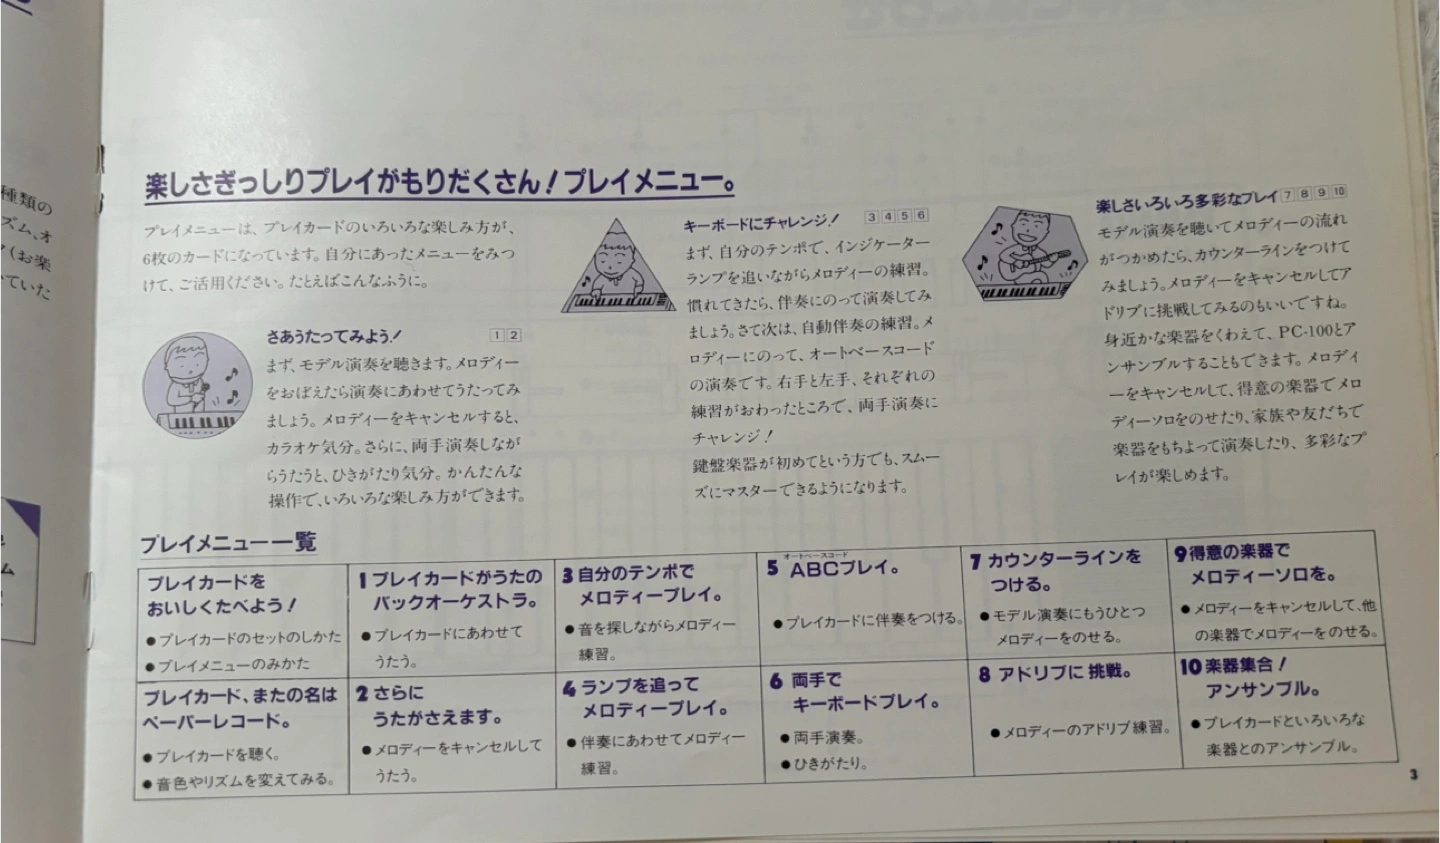 種類の
ズム、オ
(お楽
いていた
楽しさぎっしりプレイがもりだくさん!プレイメニュー。
プレイメニューは、プレイカードのいろいろな楽しみ方が、
6枚のカードになっています。自分にあったメニューをみつ
けて、ご活用ください。たとえばこんなふうに。
さあうたってみよう! 1 2
まず、モデル演奏を聴きます。メロディー
をおぼえたら演奏にあわせてうたってみ
ましょう。メロディーをキャンセルすると、
カラオケ気分。さらに、両手演奏しなが
らうたうと、ひきがたり気分。かんたんな
操作で、いろいろな楽しみ方ができます。
キーボードにチャレンジ! 3 4 5 6
まず、自分のテンポで、インジケーター
ランプを追いながらメロディーの練習。
慣れてきたら、伴奏にのって演奏してみ
ましょう。さて次は、自動伴奏の練習。メ
ロディーにのって、オートベースコード
の演奏です。右手と左手、それぞれの
練習がおわったところで、両手演奏に
チャレンジ!
鍵盤楽器が初めてという方でも、スムー
ズにマスターできるようになります。
楽しさいろいろ多彩なプレイ 7 8 9 10
モデル演奏を聴いてメロディーの流れ
がつかめたら、カウンターラインをつけて
みましょう。メロディーをキャンセルしてア
ドリブに挑戦してみるのもいいですね。
身近かな楽器をくわえて、PC-100とア
ンサンブルすることもできます。メロディ
ーをキャンセルして、得意の楽器でメロ
ディーソロをのせたり、家族や友だちで
楽器をもちよって演奏したり、多彩なプ
レイが楽しめます。
プレイメニュー一覧
プレイカードを
おいしくたべよう!
●プレイカードのセットのしかた
●プレイメニューのみかた
1 プレイカードがうたの
バックオーケストラ。
●プレイカードにあわせて
うたう。
3 自分のテンポで
メロディープレイ。
●音を探しながらメロディー
練習。
オートベースコード
5 ABCプレイ。
●プレイカードに伴奏をつける。
7 カウンターラインを
つける。
●モデル演奏にもうひとつ
メロディーをのせる。
9 得意の楽器で
メロディーソロを。
●メロディーをキャンセルして、他
の楽器でメロディーをのせる。
プレイカード、またの名は
ペーパーレコード。
●プレイカードを聴く。
●音色やリズムを変えてみる。
2 さらに
うたがさえます。
●メロディーをキャンセルして
うたう。
4 ランプを追って
メロディープレイ。
●伴奏にあわせてメロディー
練習。
6 両手で
キーボードプレイ。
●両手演奏。
●ひきがたり。
8 アドリブに挑戦。
●メロディーのアドリブ練習。
10 楽器集合!
アンサンブル。
●プレイカードといろいろな
楽器とのアンサンブル。
3